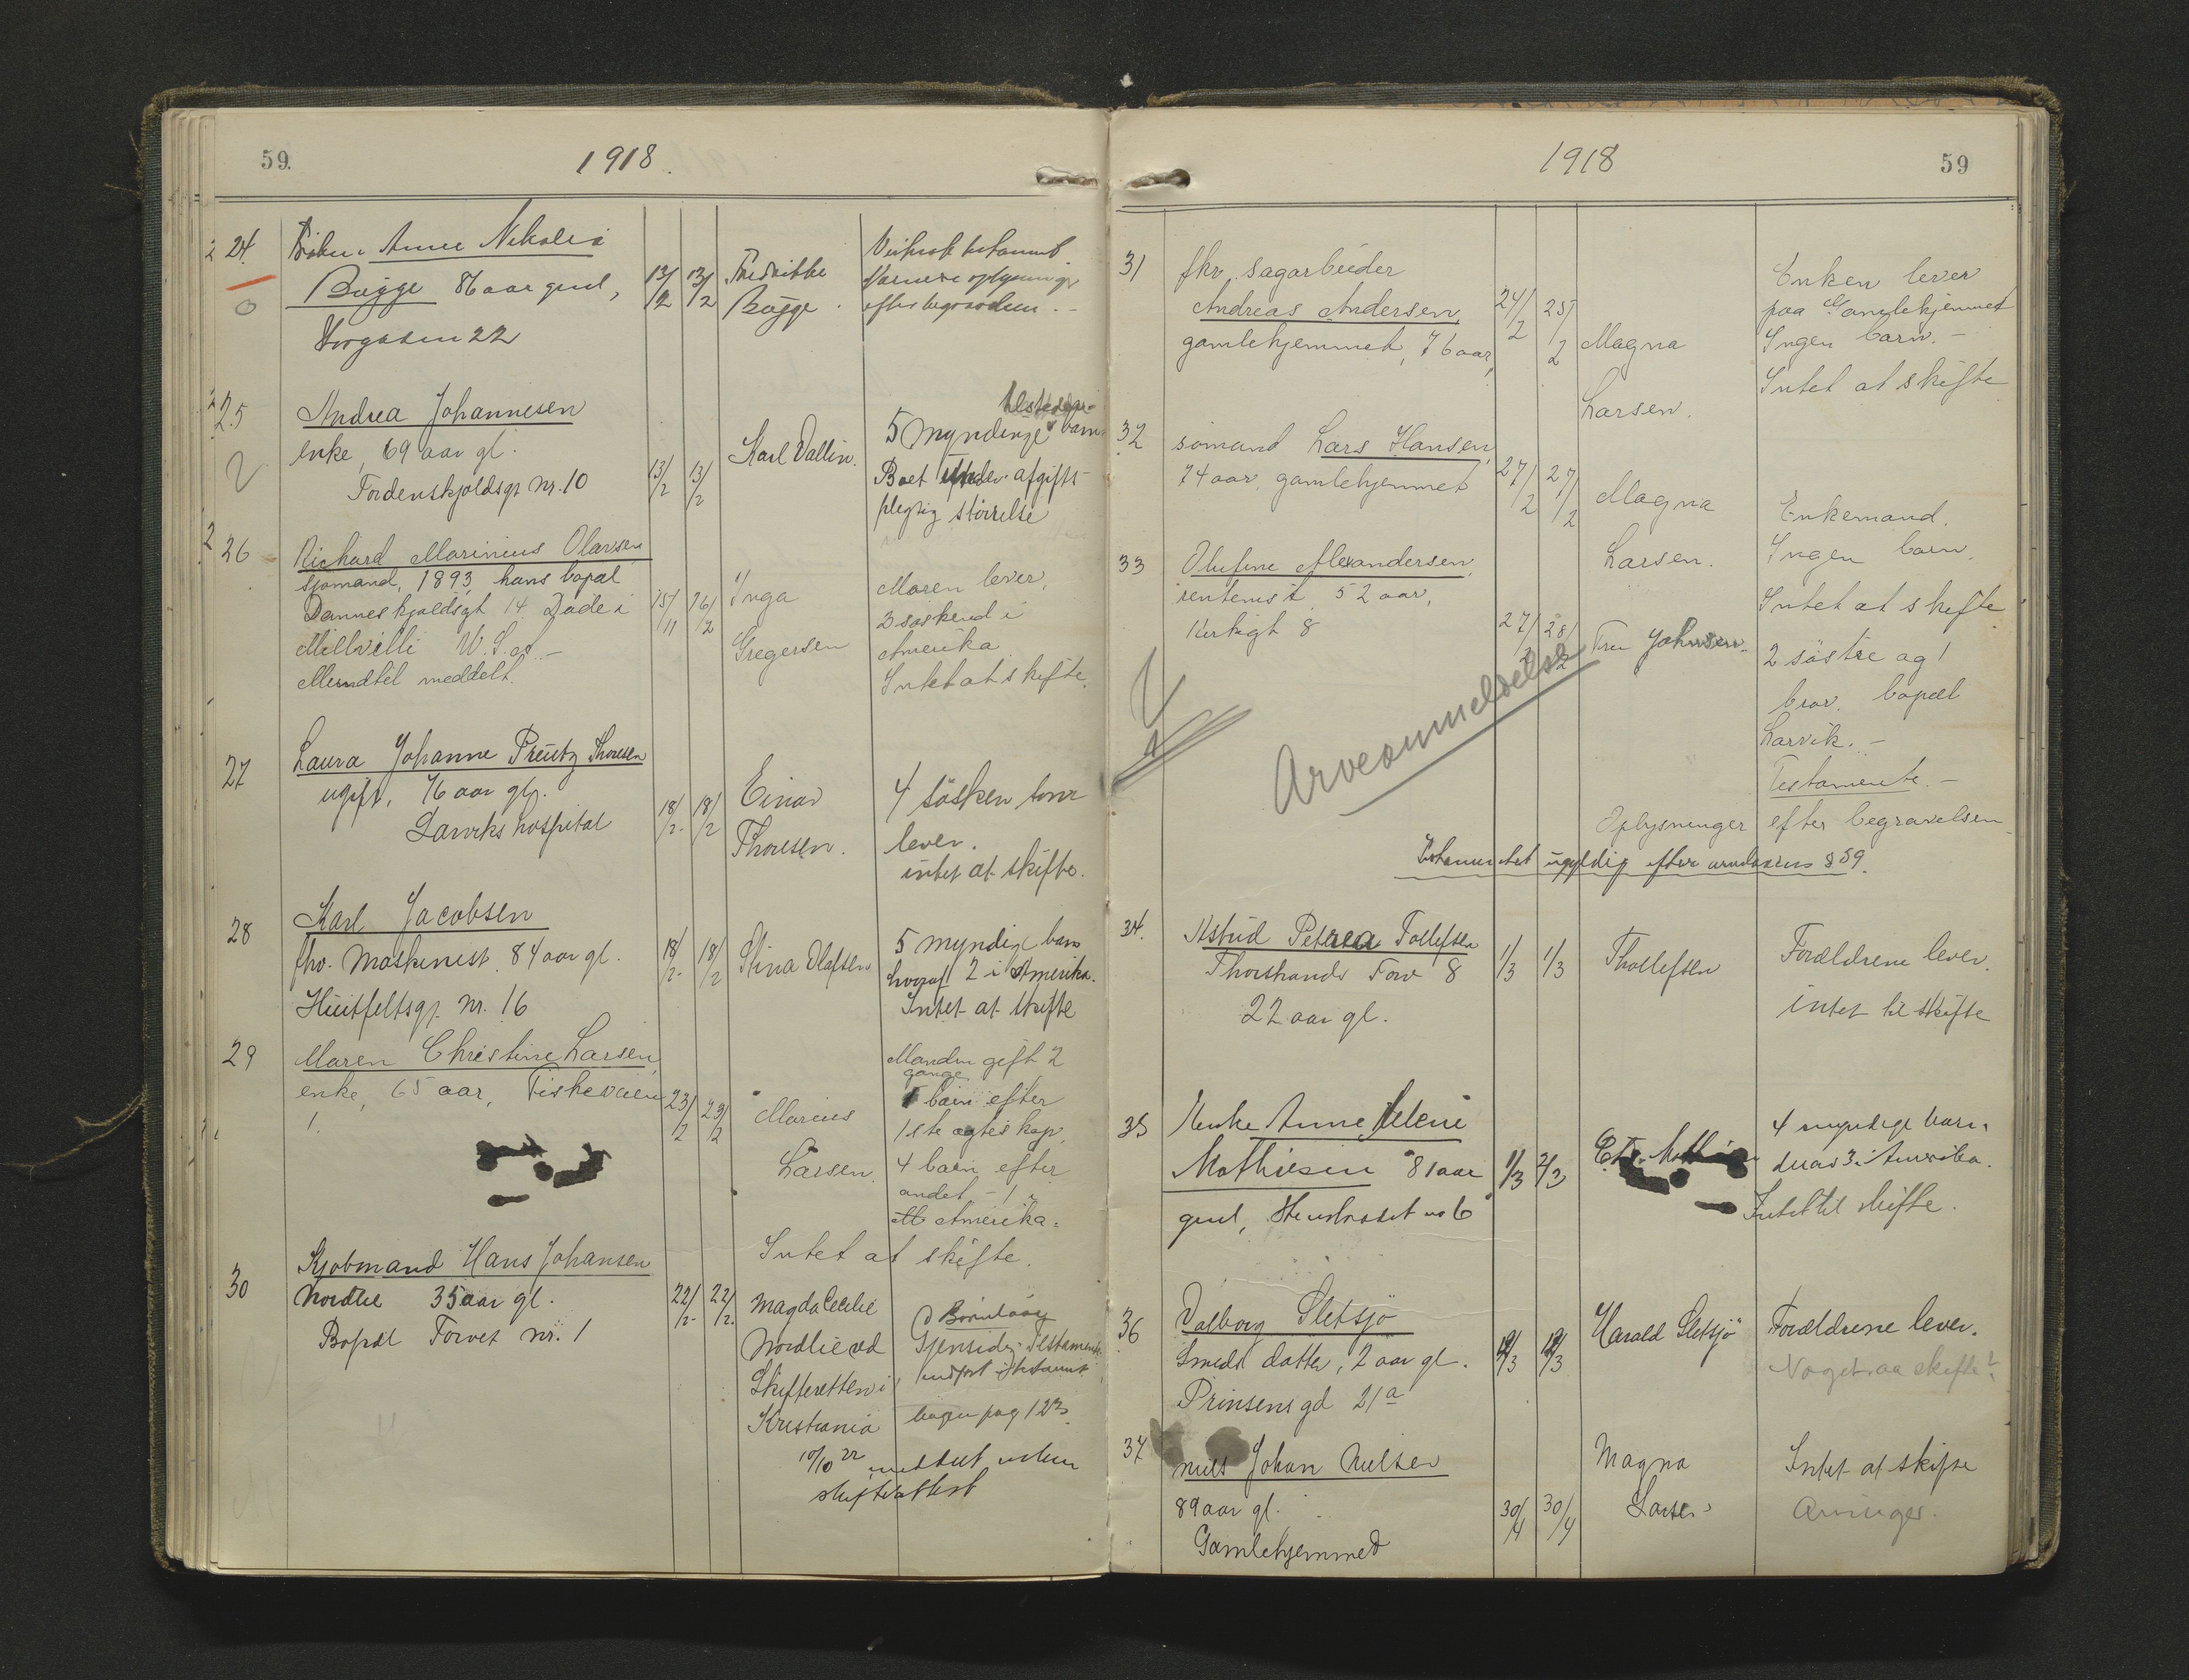 59.
1918.
24. Anne Nikolea
Bugge 86 aar gml,
13/2 13/2
Fredrikke
Bugge.
25 Andrea Johannesen
enke, 69 aar gl.
Tordenskjoldsgt Nr. 10
13/2 13/2
Karl Vallin.
5 Myndige barn
Boet under afgifts-
plegtig störrelse
26 Richard Marinius Olavsen
Sjömand, 1893, hans bopæl
Danneskjoldsgt 14. Döde i
Millvilli W.S.A. -
meddelt.
15/11 26/2
Inga
Gregersen
Moren lever,
3 söskend i
Amerika
Intet at skifte.
27 Laura Johanne Preutz Thoresen
ugift, 76 aar gl.
Larviks hospital
18/2 18/2
Einar
Thoresen.
4 sösken som
lever.
intet at skifte.
28 Karl Jacobsen
fhv. Maskinist. 84 aar gl.
Huitfeltsgt. Nr. 16
18/2 18/2
Stina Olafsen
5 myndige barn
hvoraf 2 i Amerika.
Intet at skifte
29 Maren Christine Larsen,
enke, 65 aar, Fiskeveien
1.
23/2 23/2
Marius
Larsen.
Manden gift 2
gange
1 barn efter
1ste egteskap,
4 barn efter
andet - 1 i
Amerika.
Intet at skifte.
30 Kjöbmand Hans Johansen
Nordlie 35 aar gl.
Bopæl Torvet Nr. 1
22/2 22/2
Magda Cecilie
Nordlie ved
Skifteretten i
Kristiania
Gjensidig Testamente
pag 123
10/10 22 meddelt
skifteattest
1918
59
31 fhv. sagarbeider
Andreas Andersen,
gamlehjemmet, 76 aar,
24/2 25/2
Magna
Larsen.
Enken lever
paa Gamlehjemmet
Ingen barn. -
Intet at skifte
32 sömand Lars Hansen,
74 aar, gamlehjemmet
27/2 27/2
Magna
Larsen.
Enkemand.
Ingen barn.
Intet at skifte
33 Olufine Alexandersen,
rentenist, 52 aar,
Kirkegt 8
27/2 28/2
Fru Johnsen.
2 söstre og 1
bror, bopæl
Larvik. -
Testamente. -
Oplysninger efter begravelsen.
Arveanmeldelse
Testamentet ugyldig efter arveloven § 59.
34. Astrid Petrea Tollefsen
Thorstrands Torv 8
22 aar gl.
1/3 1/3
Thollefsen
Forældrene lever.
intet til skifte
35 Enke Anne Helene
Mathisen 81 aar
gml, no 6
1/3 2/3
4 myndige barn.
3 i Amerika.
Intet til skifte.
36 Valborg Sletsjö
Smeds datter, 2 aar gl.
Prinsensgd 21a
12/3 12/3
Harald Sletsjö
Forældrene lever.
Noget aa skifte?
37 Nils Johan Nielsen
89 aar gl.
Gamlehjemmed
30/4 30/4
Magna
Larsen
Intet at skifte
Arvinger.